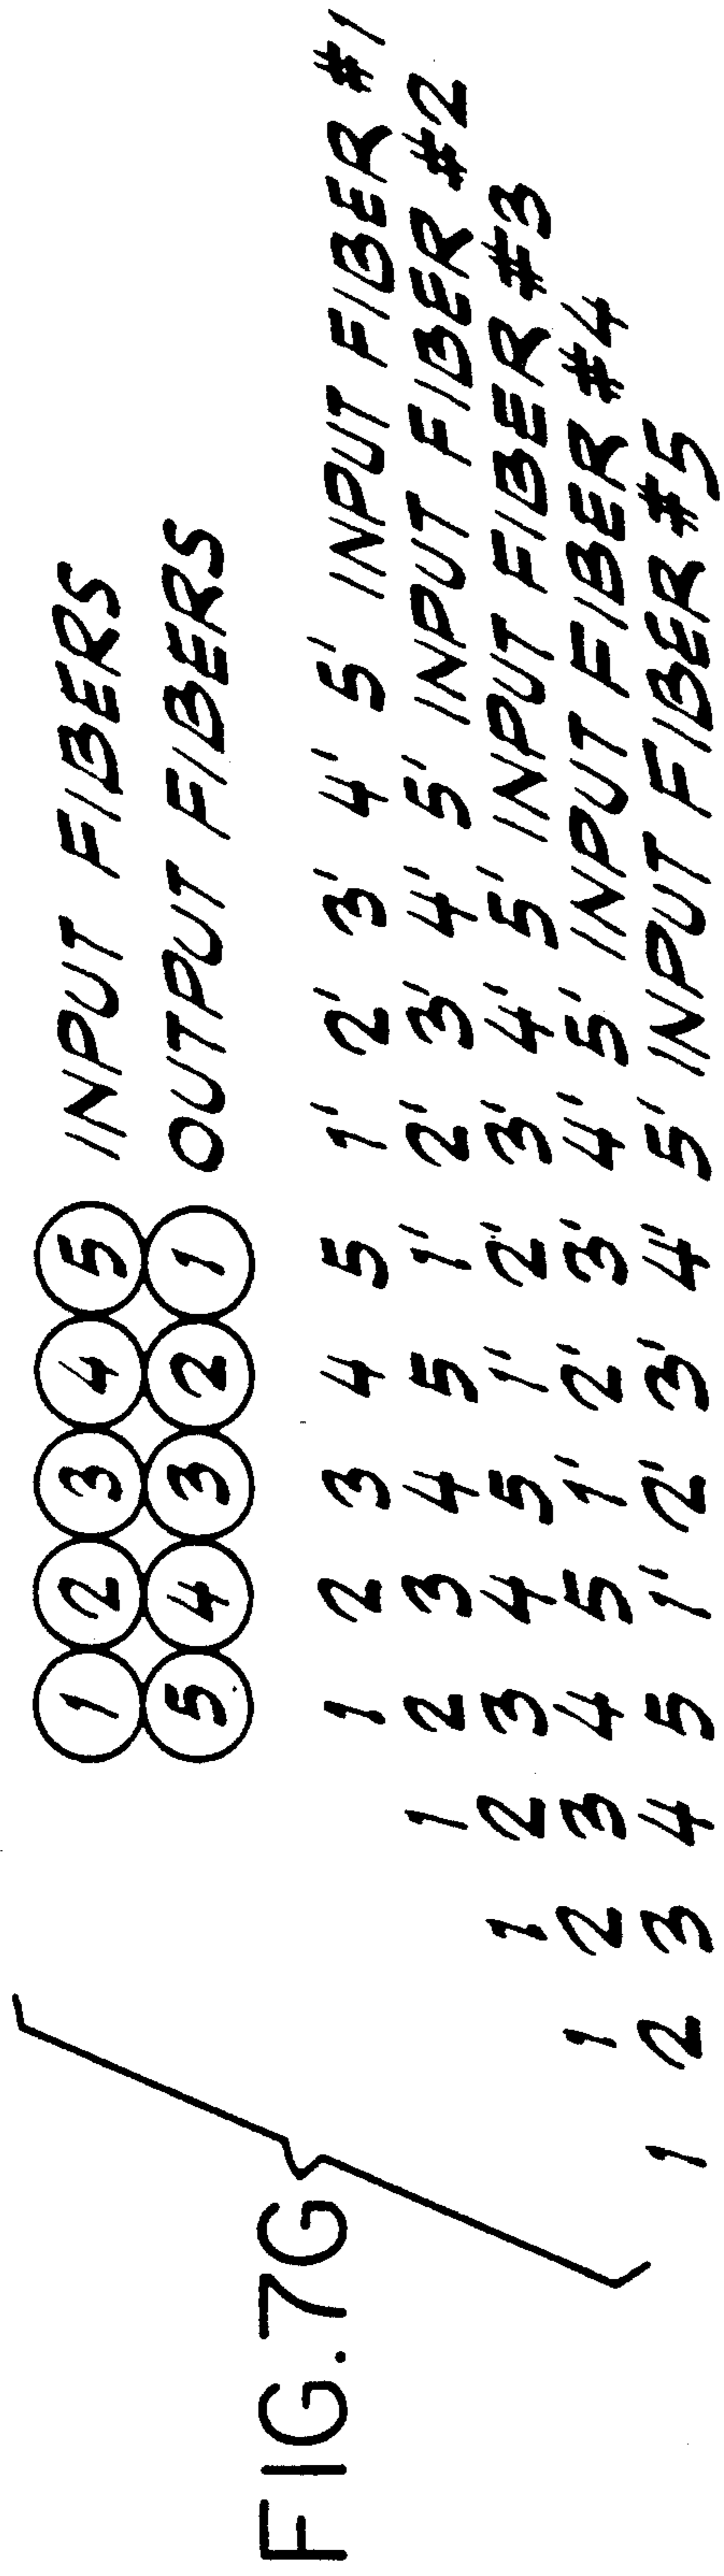 FIG.7G
1 2 3 4 5 INPUT FIBERS
5 4 3 2 1 OUTPUT FIBERS
1 2 3 4 5 1' 2' 3' 4' 5' INPUT FIBER #1
1 2 3 4 5 1' 2' 3' 4' 5' INPUT FIBER #2
1 2 3 4 5 1' 2' 3' 4' 5' INPUT FIBER #3
1 2 3 4 5 1' 2' 3' 4' 5' INPUT FIBER #4
1 2 3 4 5 1' 2' 3' 4' 5' INPUT FIBER #5